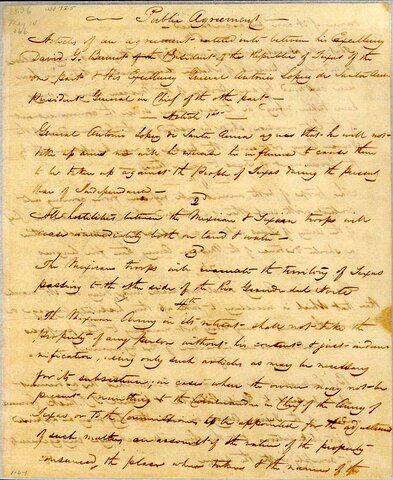 1836
May 14
No 125
Public Agreement
Articles of an agreement entered into between his Excellency
David G. Burnet of the President of the Republic of Texas of the
one part & His Excellency General Antonio Lopez de Santa Anna
President General in Chief of the other part —
Article 1st —
General Antonio Lopez de Santa Anna agrees that he will not
take up arms nor will he exercise his influence to cause them
to be taken up against the People of Texas during the present
War of Independence —
2
All hostilities between the Mexican & Texian troops will
cease immediately both on land & water —
3
The Mexican troops will evacuate the territory of Texas
passing to the other side of the Rio Grande del Norte
4th
The Mexican Army in its retreat shall not take the
property of any person without his consent & just indem-
nification, using only such articles as may be necessary
for its subsistence, in cases where the owner may not be
present & remitting to the Commander in Chief of the Army of
Texas or to the Commissioner to be appointed for the adjustment
of such matters, an account of the value of the property
consumed, the place where taken, & the name of the